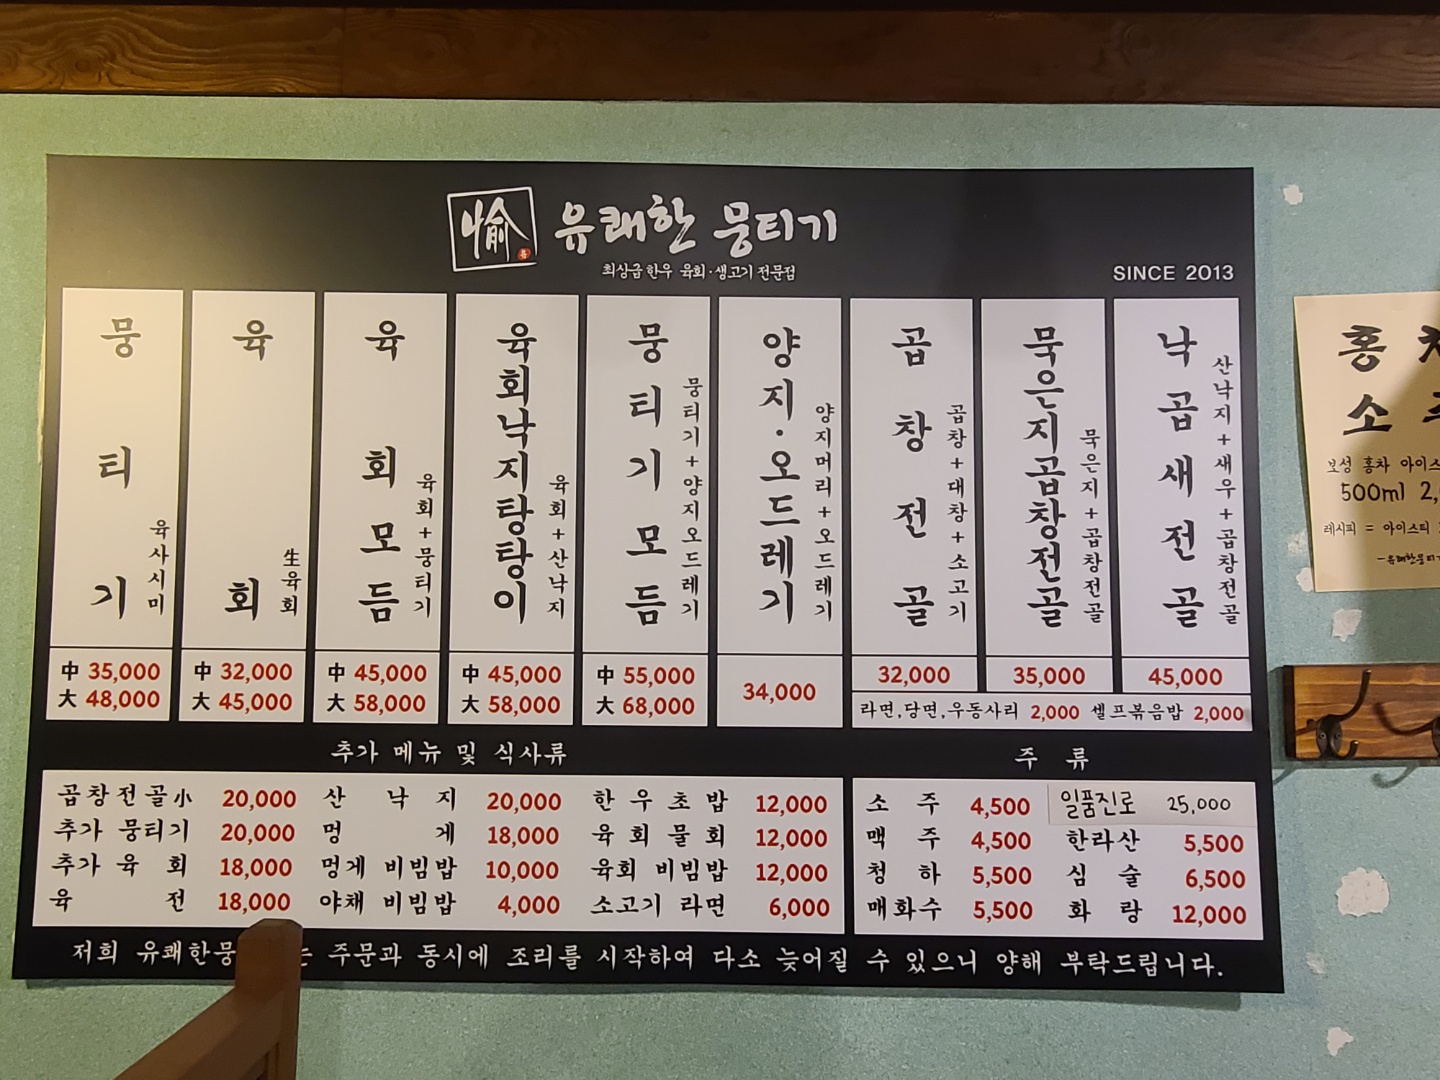 愉 유쾌한 뭉티기
최상급 한우 육회·생고기 전문점
SINCE 2013
뭉티기 육사시미
中 35,000
大 48,000
육회 生육회
中 32,000
大 45,000
육회모듬 육회+뭉티기
中 45,000
大 58,000
육회낙지탕탕이 육회+산낙지
中 45,000
大 58,000
뭉티기모듬 뭉티기+양지오드레기
中 55,000
大 68,000
양지·오드레기 양지머리+오드레기
34,000
곱창전골 곱창+대창+소고기
32,000
묵은지곱창전골 묵은지+곱창전골
35,000
낙곱새전골 산낙지+새우+곱창전골
45,000
라면,당면,우동사리 2,000 셀프볶음밥 2,000
추가 메뉴 및 식사류
곱창전골小 20,000
추가 뭉티기 20,000
추가 육회 18,000
육전 18,000
산낙지 20,000
멍게 18,000
멍게 비빔밥 10,000
야채 비빔밥 4,000
한우초밥 12,000
육회물회 12,000
육회 비빔밥 12,000
소고기 라면 6,000
주류
소주 4,500
맥주 4,500
청하 5,500
매화수 5,500
일품진로 25,000
한라산 5,500
심술 6,500
화랑 12,000
저희 유쾌한뭉 는 주문과 동시에 조리를 시작하여 다소 늦어질 수 있으니 양해 부탁드립니다.
홍
소
보성 홍차 아이스
500ml 2,
레시피 = 아이스티